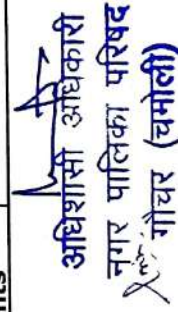 nts
अधिशासी अधिकारी
नगर पालिका परिषद
गौचर (चमोली)